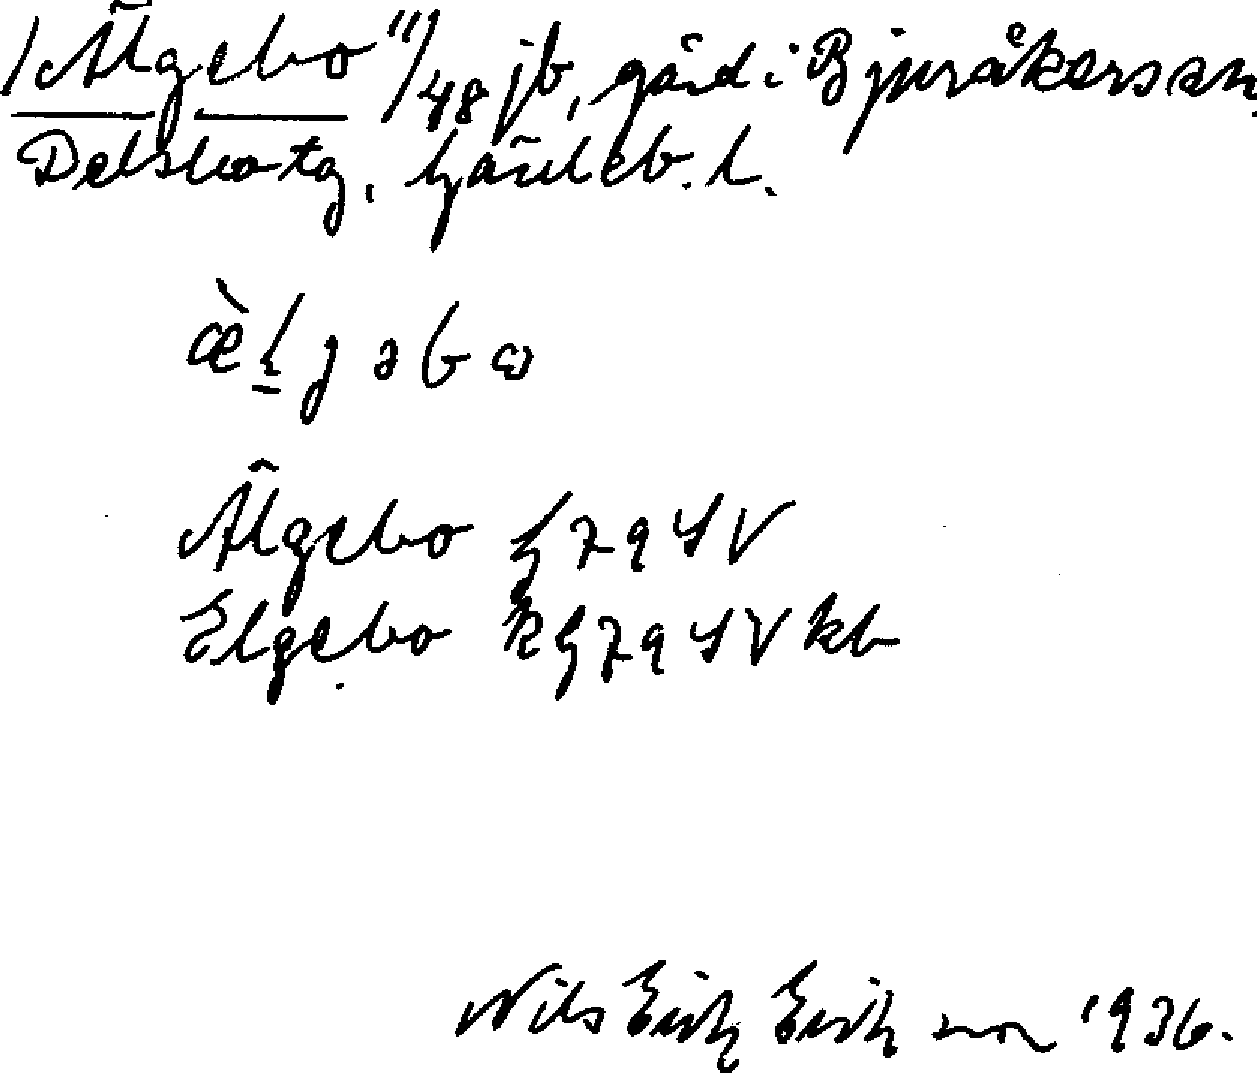 /Älgebo 11/48 jb, gård i Bjuråkers sn.
Delsbo tg, Gävleb. l.
æ̀l̠jəbω
Älgebo
Elgebo kb
Nils Erik Erik son 1936.